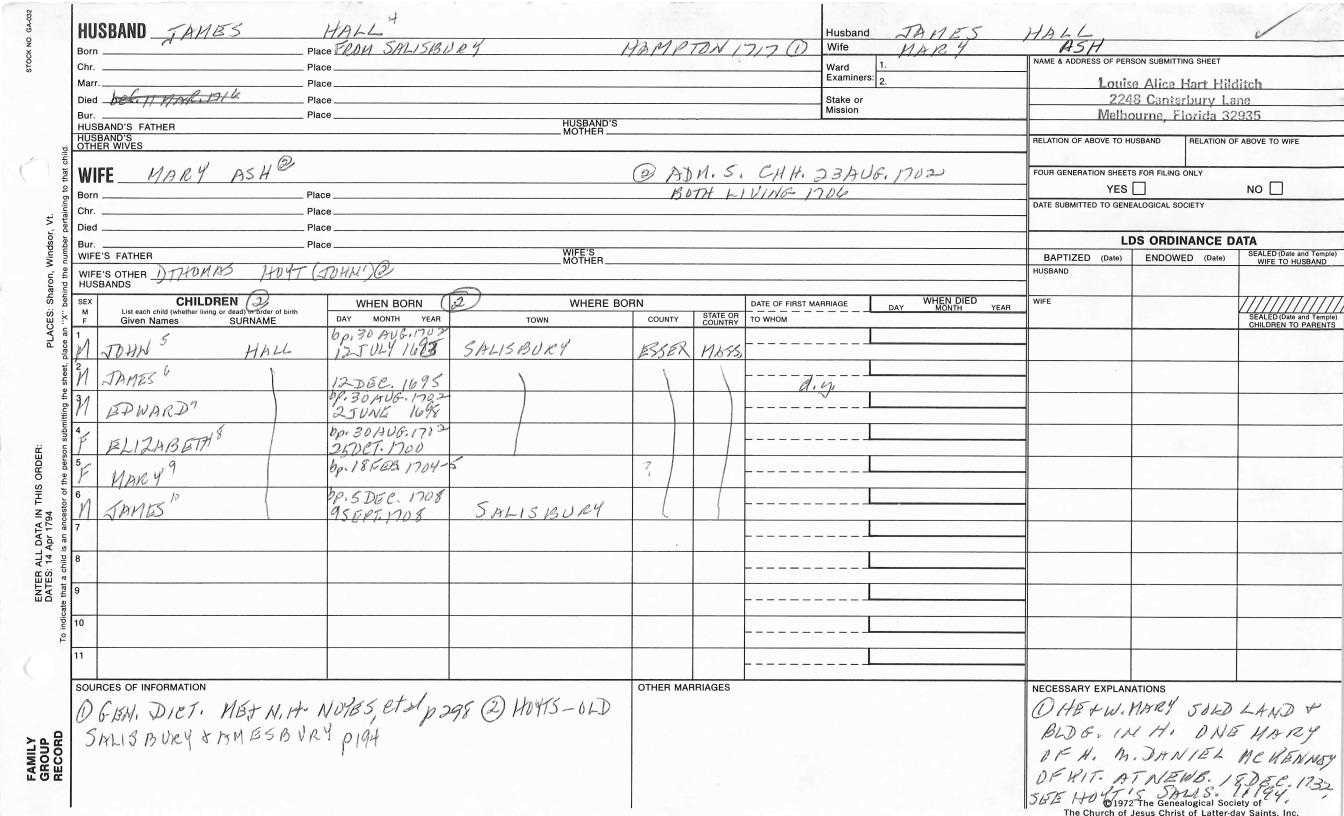 STOCK NO. GA-032
PLACES: Sharon, Windsor, Vt.
ENTER ALL DATA IN THIS ORDER:
DATES: 14 Apr 1794
To indicate that a child is an ancestor of the person submitting the sheet, place an "X" behind the number pertaining to that child.
FAMILY GROUP RECORD
HUSBAND JAMES HALL 4
Born Place FROM SALISBURY HAMPTON 1717 ①
Chr. Place
Marr. Place
Died bef. 11 MAR. Place
Bur. Place
HUSBAND'S FATHER HUSBAND'S MOTHER
HUSBAND'S OTHER WIVES
WIFE MARY ASH ② ② ADM. S. CHH. 23 AUG. 1702
Born Place BOTH LIVING 1706
Chr. Place
Died Place
Bur. Place
WIFE'S FATHER WIFE'S MOTHER
WIFE'S OTHER HUSBANDS 1) THOMAS HOYT (JOHN¹) ②
Husband JAMES HALL ✓
Wife MARY ASH
Ward Examiners: 1.
2.
Stake or Mission
NAME & ADDRESS OF PERSON SUBMITTING SHEET
Louise Alice Hart Hilditch
2248 Canterbury Lane
Melbourne, Florida 32935
RELATION OF ABOVE TO HUSBAND RELATION OF ABOVE TO WIFE
FOUR GENERATION SHEETS FOR FILING ONLY
YES NO
DATE SUBMITTED TO GENEALOGICAL SOCIETY
LDS ORDINANCE DATA
BAPTIZED (Date) ENDOWED (Date) SEALED (Date and Temple) WIFE TO HUSBAND
HUSBAND
WIFE
SEALED (Date and Temple) CHILDREN TO PARENTS
SEX M F CHILDREN ② WHEN BORN ② WHERE BORN DATE OF FIRST MARRIAGE WHEN DIED
List each child (whether living or dead) in order of birth
Given Names SURNAME DAY MONTH YEAR TOWN COUNTY STATE OR COUNTRY TO WHOM DAY MONTH YEAR
1 bp. 30 AUG. 1702
M JOHN 5 HALL 12 JULY SALISBURY ESSEX MASS.
2
M JAMES 6 12 DEC. 1695 d.y.
3 bp. 30 AUG. 1702
M EDWARD 7 2 JUNE 1698
4 bp. 30 AUG.
F ELIZABETH 8 25 OCT. 1700
5
F MARY 9 bp. 18 FEB 1704-5 ?
6 bp. 5 DEC. 1708
M JAMES 10 9 SEPT. 1708 SALISBURY
7
8
9
10
11
SOURCES OF INFORMATION
① GEN. DICT. ME & N.H. NOYES, et al p298 ② HOYTS-OLD
SALISBURY & AMESBURY p194
OTHER MARRIAGES
NECESSARY EXPLANATIONS
① HE & W. MARY SOLD LAND &
BLDG. IN H. ONE MARY
OF H. M. DANIEL MCKENNEY
OF KIT. AT NEWB. 18 DEC. 1732.
SEE HOYT'S SALIS.
©1972 The Genealogical Society of
The Church of Jesus Christ of Latter-day Saints, Inc.